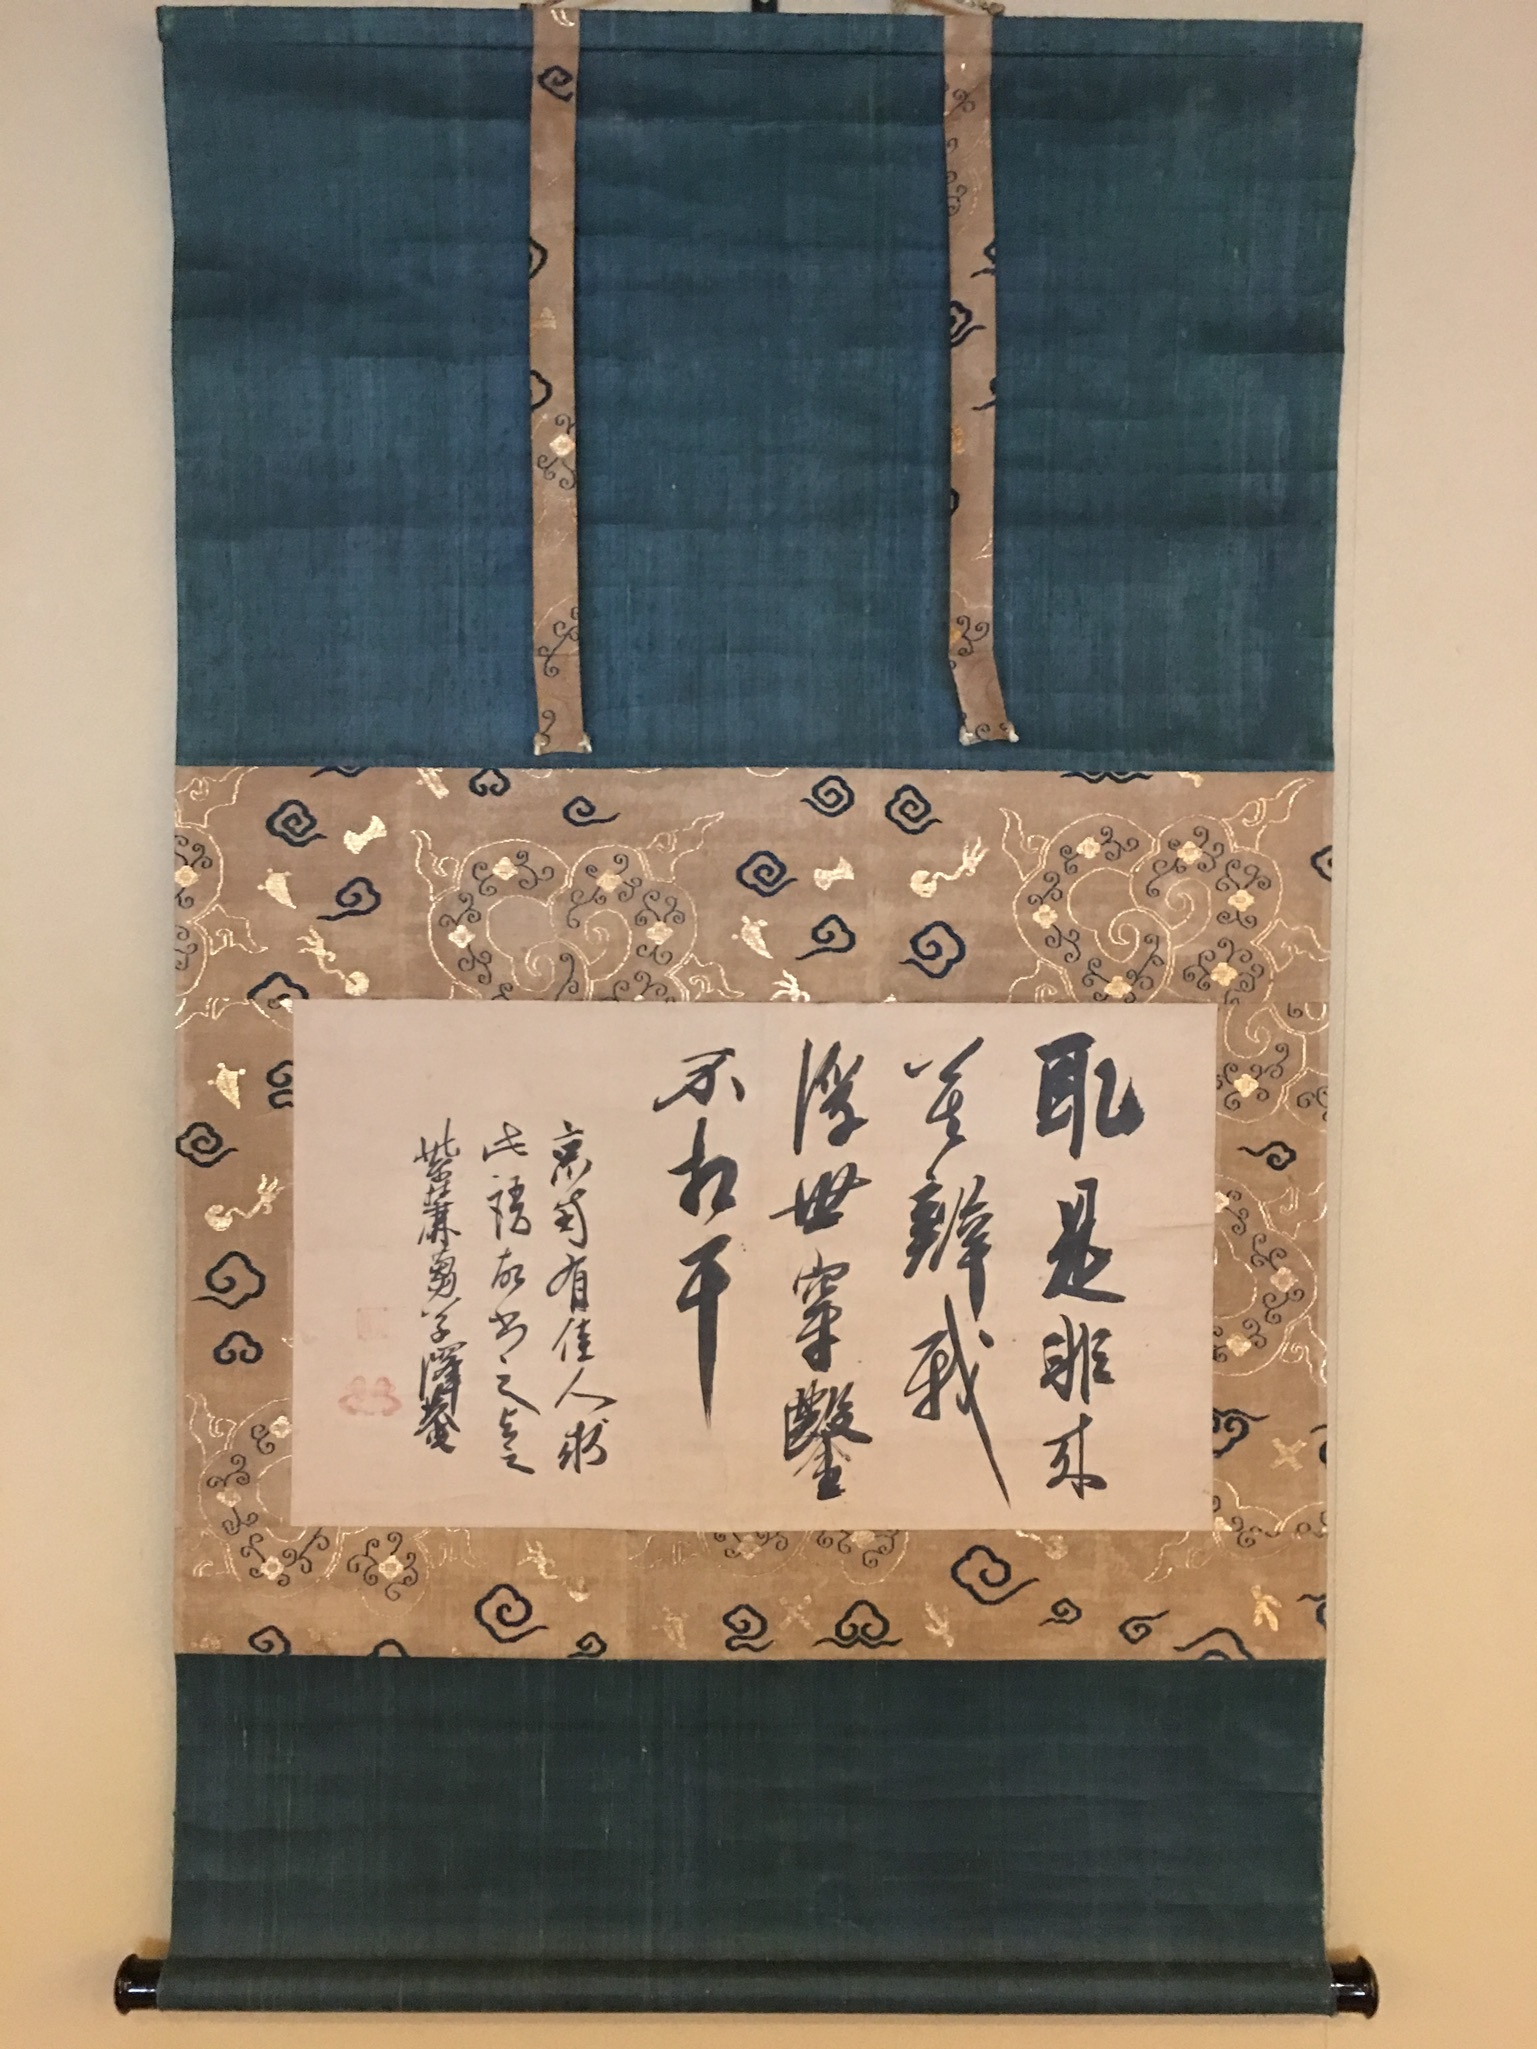 取是非来
莫辨我
浮世穿鑿
不相干
京
有佳人求
此語故書之
澤菴